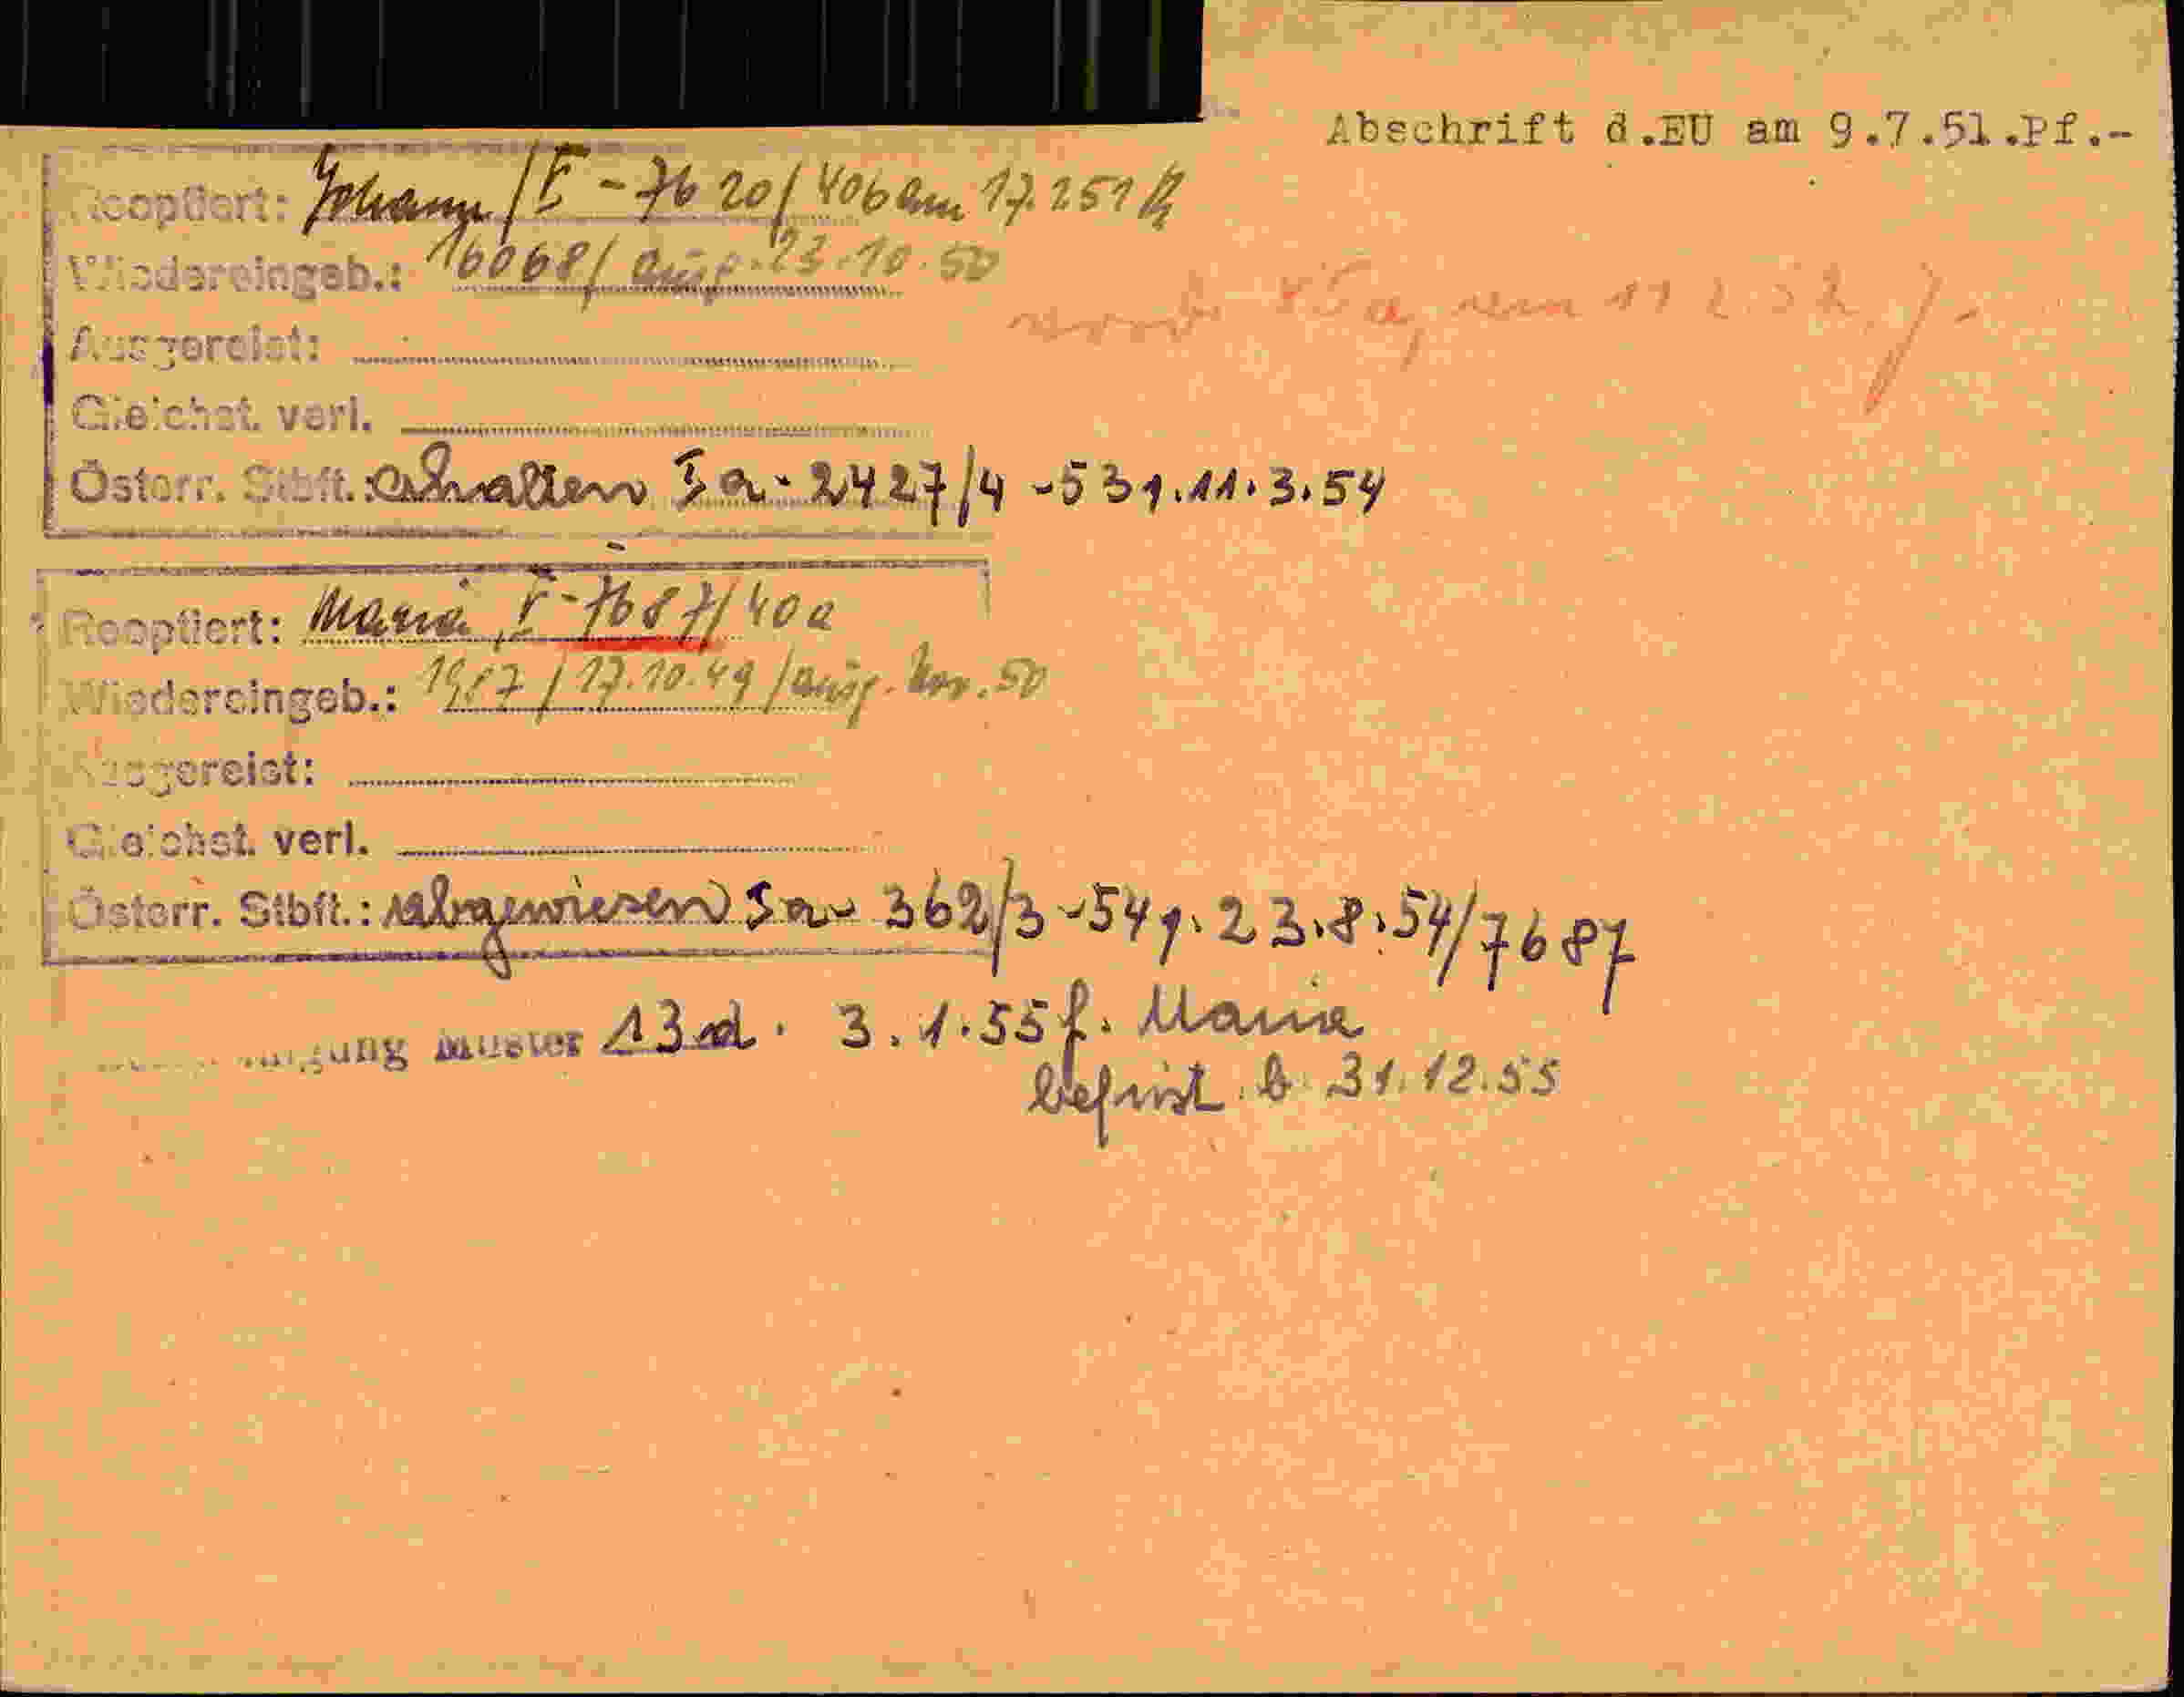 Abschrift d.EU am 9.7.51.Pf.-
Reoptiert: Johann / V - 7620 / 406 am 17.2 51
Wiedereingeb.: 16068 / ausg. 23.10.50
Ausgereist:
Gleichst. verl.
Österr. Stbft.: erhalten I a - 2427/4 - 53 v. 11.3.54
Reoptiert: Maria, V - 7687 / 40a
Wiedereingeb.: 1987 / 17.10.49 / ausg. Nov. 50
Ausgereist:
Gleichst. verl.
Österr. Stbft.: abgewiesen I a - 362/3 - 54 v. 23.8.54/7687
Muster 13 d. 3.1.55 f. Maria
befrist. b. 31.12.55